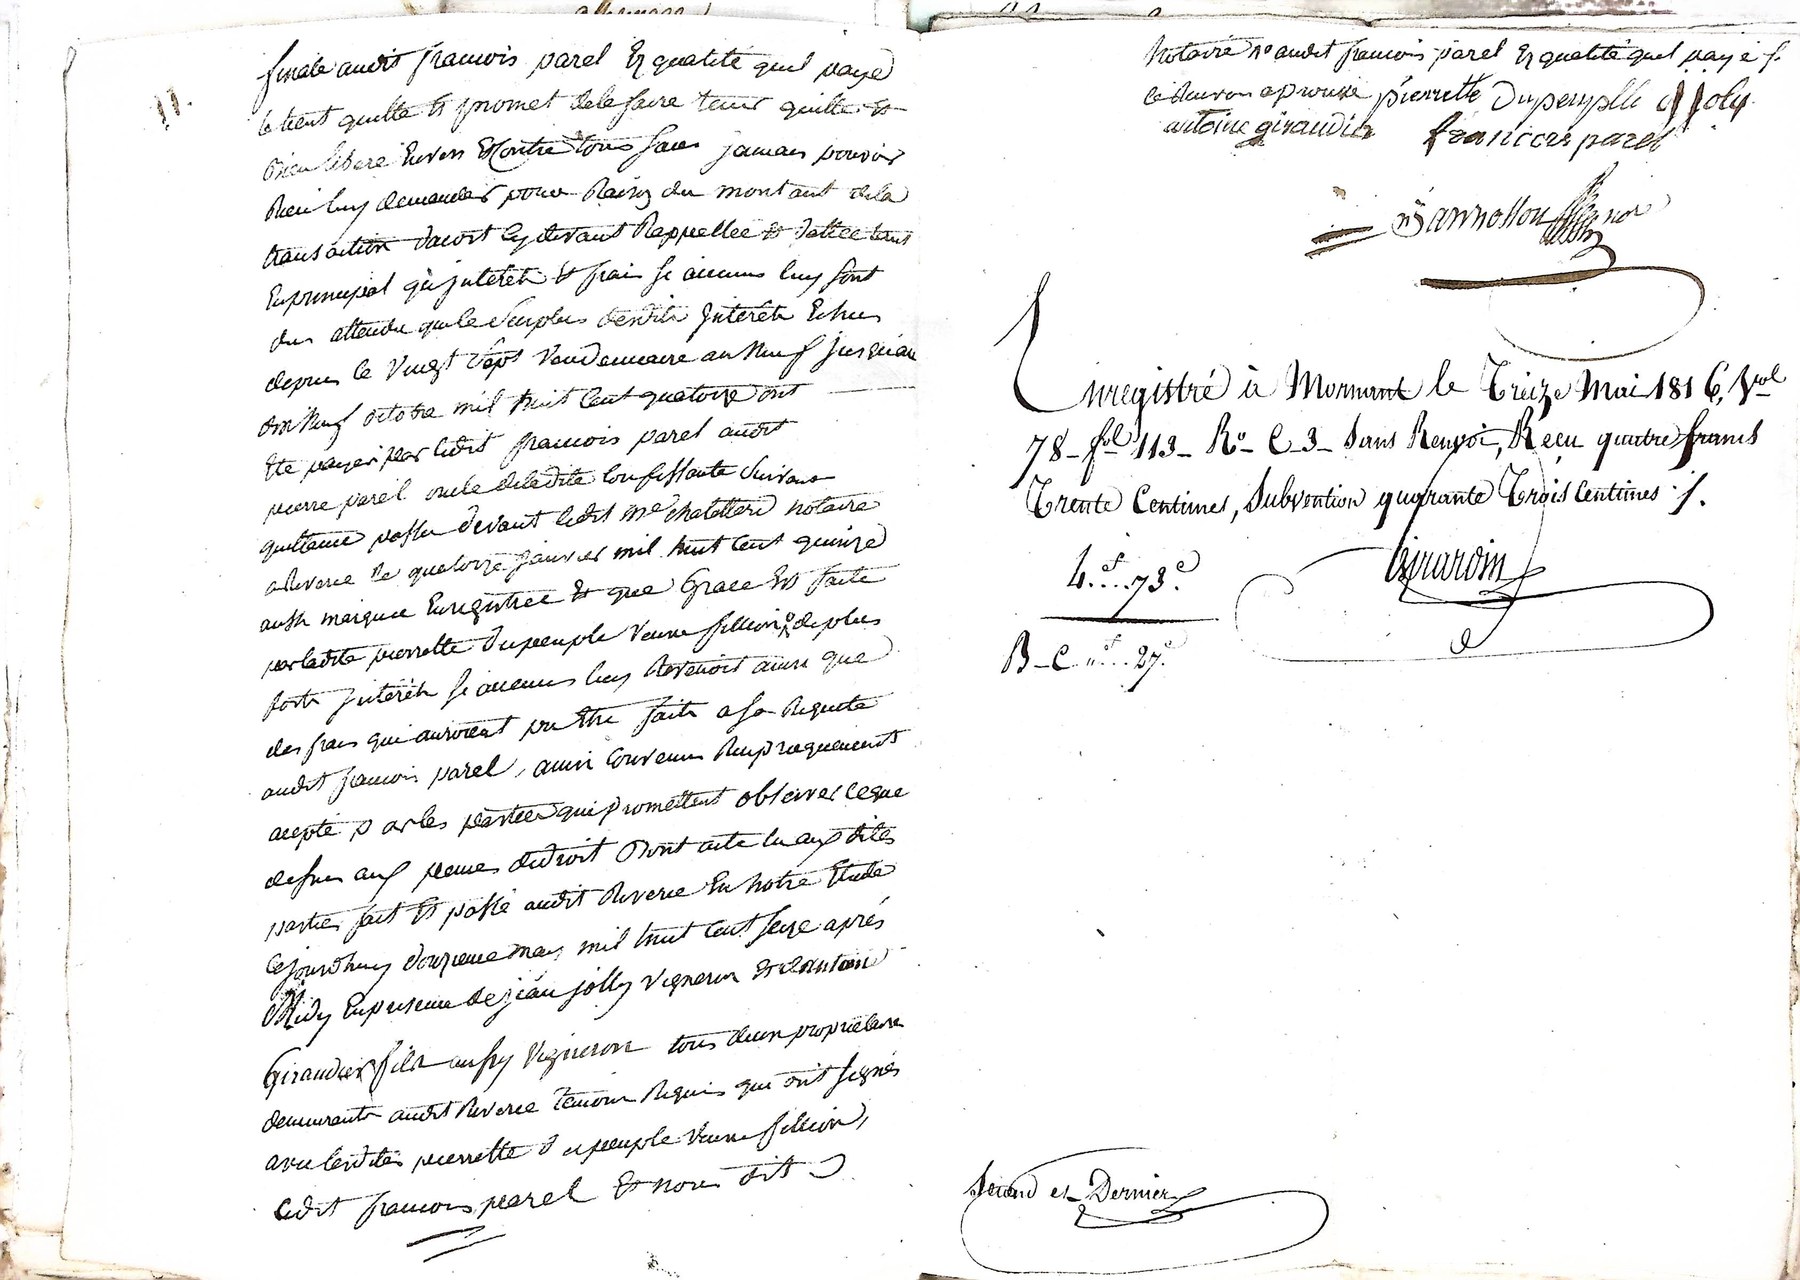 11.
finale audit francois parel En qualité quil paye
le tient quitte Et promet de le faire tenir quitte Et
bien libéré Envers Et Contre tous sans jamais pouvoir
Rien luy demander pour Raison du montant de la
transaction d'acort cy devant Rappellée Et dattée tant
En principal qu'jnterets Et frais si aucuns luy sont
dus attendu que le surplus desdits jnterets Echus
depuis le vingt sept vendemiaire an Neuf jusqu'au
dix Neuf octobre mil huit Cent quatorze ont
Eté payés par ledit francois parel audit
pierre parel oncle de ladite Confessante suivant
quittance passée devant ledit me chatellerd notaire
a Riverie le quatorze janvier mil huit Cent quinze
aussy Enregistrée Et que Grace Est faite
par ladite pierrette dupeuple veuve fillion de plus
forts jnterets si aucuns luy Revenoit ainsi que
des frais qui auroient pu Etre faits a sa Requete
audit francois parel, ainsi Convenu Reciproquement
accepté par les parties qui promettent observer ce que
dessus aux peines de droit Dont acte lu aux dites
parties fait Et passé audit Riverie En notre Etude
Cejourdhuy douzieme may mil huit Cent seize après
Midy En presence de jean jolly vigneron Et d'antoine
Giraudier fils aussy vigneron tous deux propriétaire
demeurants audit Riverie temoins Requis qui ont signés
avec lesdites pierrette dupeuple veuve fillion,
Ledit francois parel Et nous dit
Notaire audit francois parel En qualité quil paye
aprouvé pierrette Dupeuplle J Joly
antoine giraudier francois parel
Enregistré à Mornant le Treize Mai 1816, Vol
78 fol 113 Ro C 3 Sans Renvoi, Reçu quatre francs
Trente Centimes, Subvention quarante Trois Centimes
4.f..73.c
Girardin
B-C "f..27.c
Second et Dernier